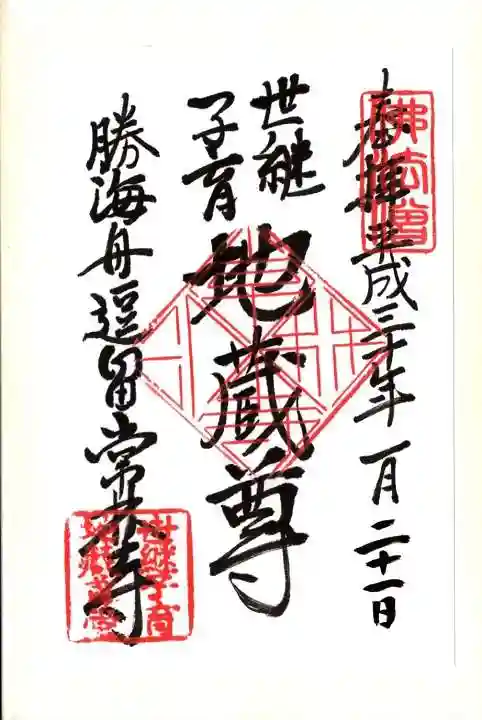 奉拝 平成三十年一月二十一日
佛法僧
世継
子育
地蔵尊
勝海舟逗留 常楽寺
世継子育